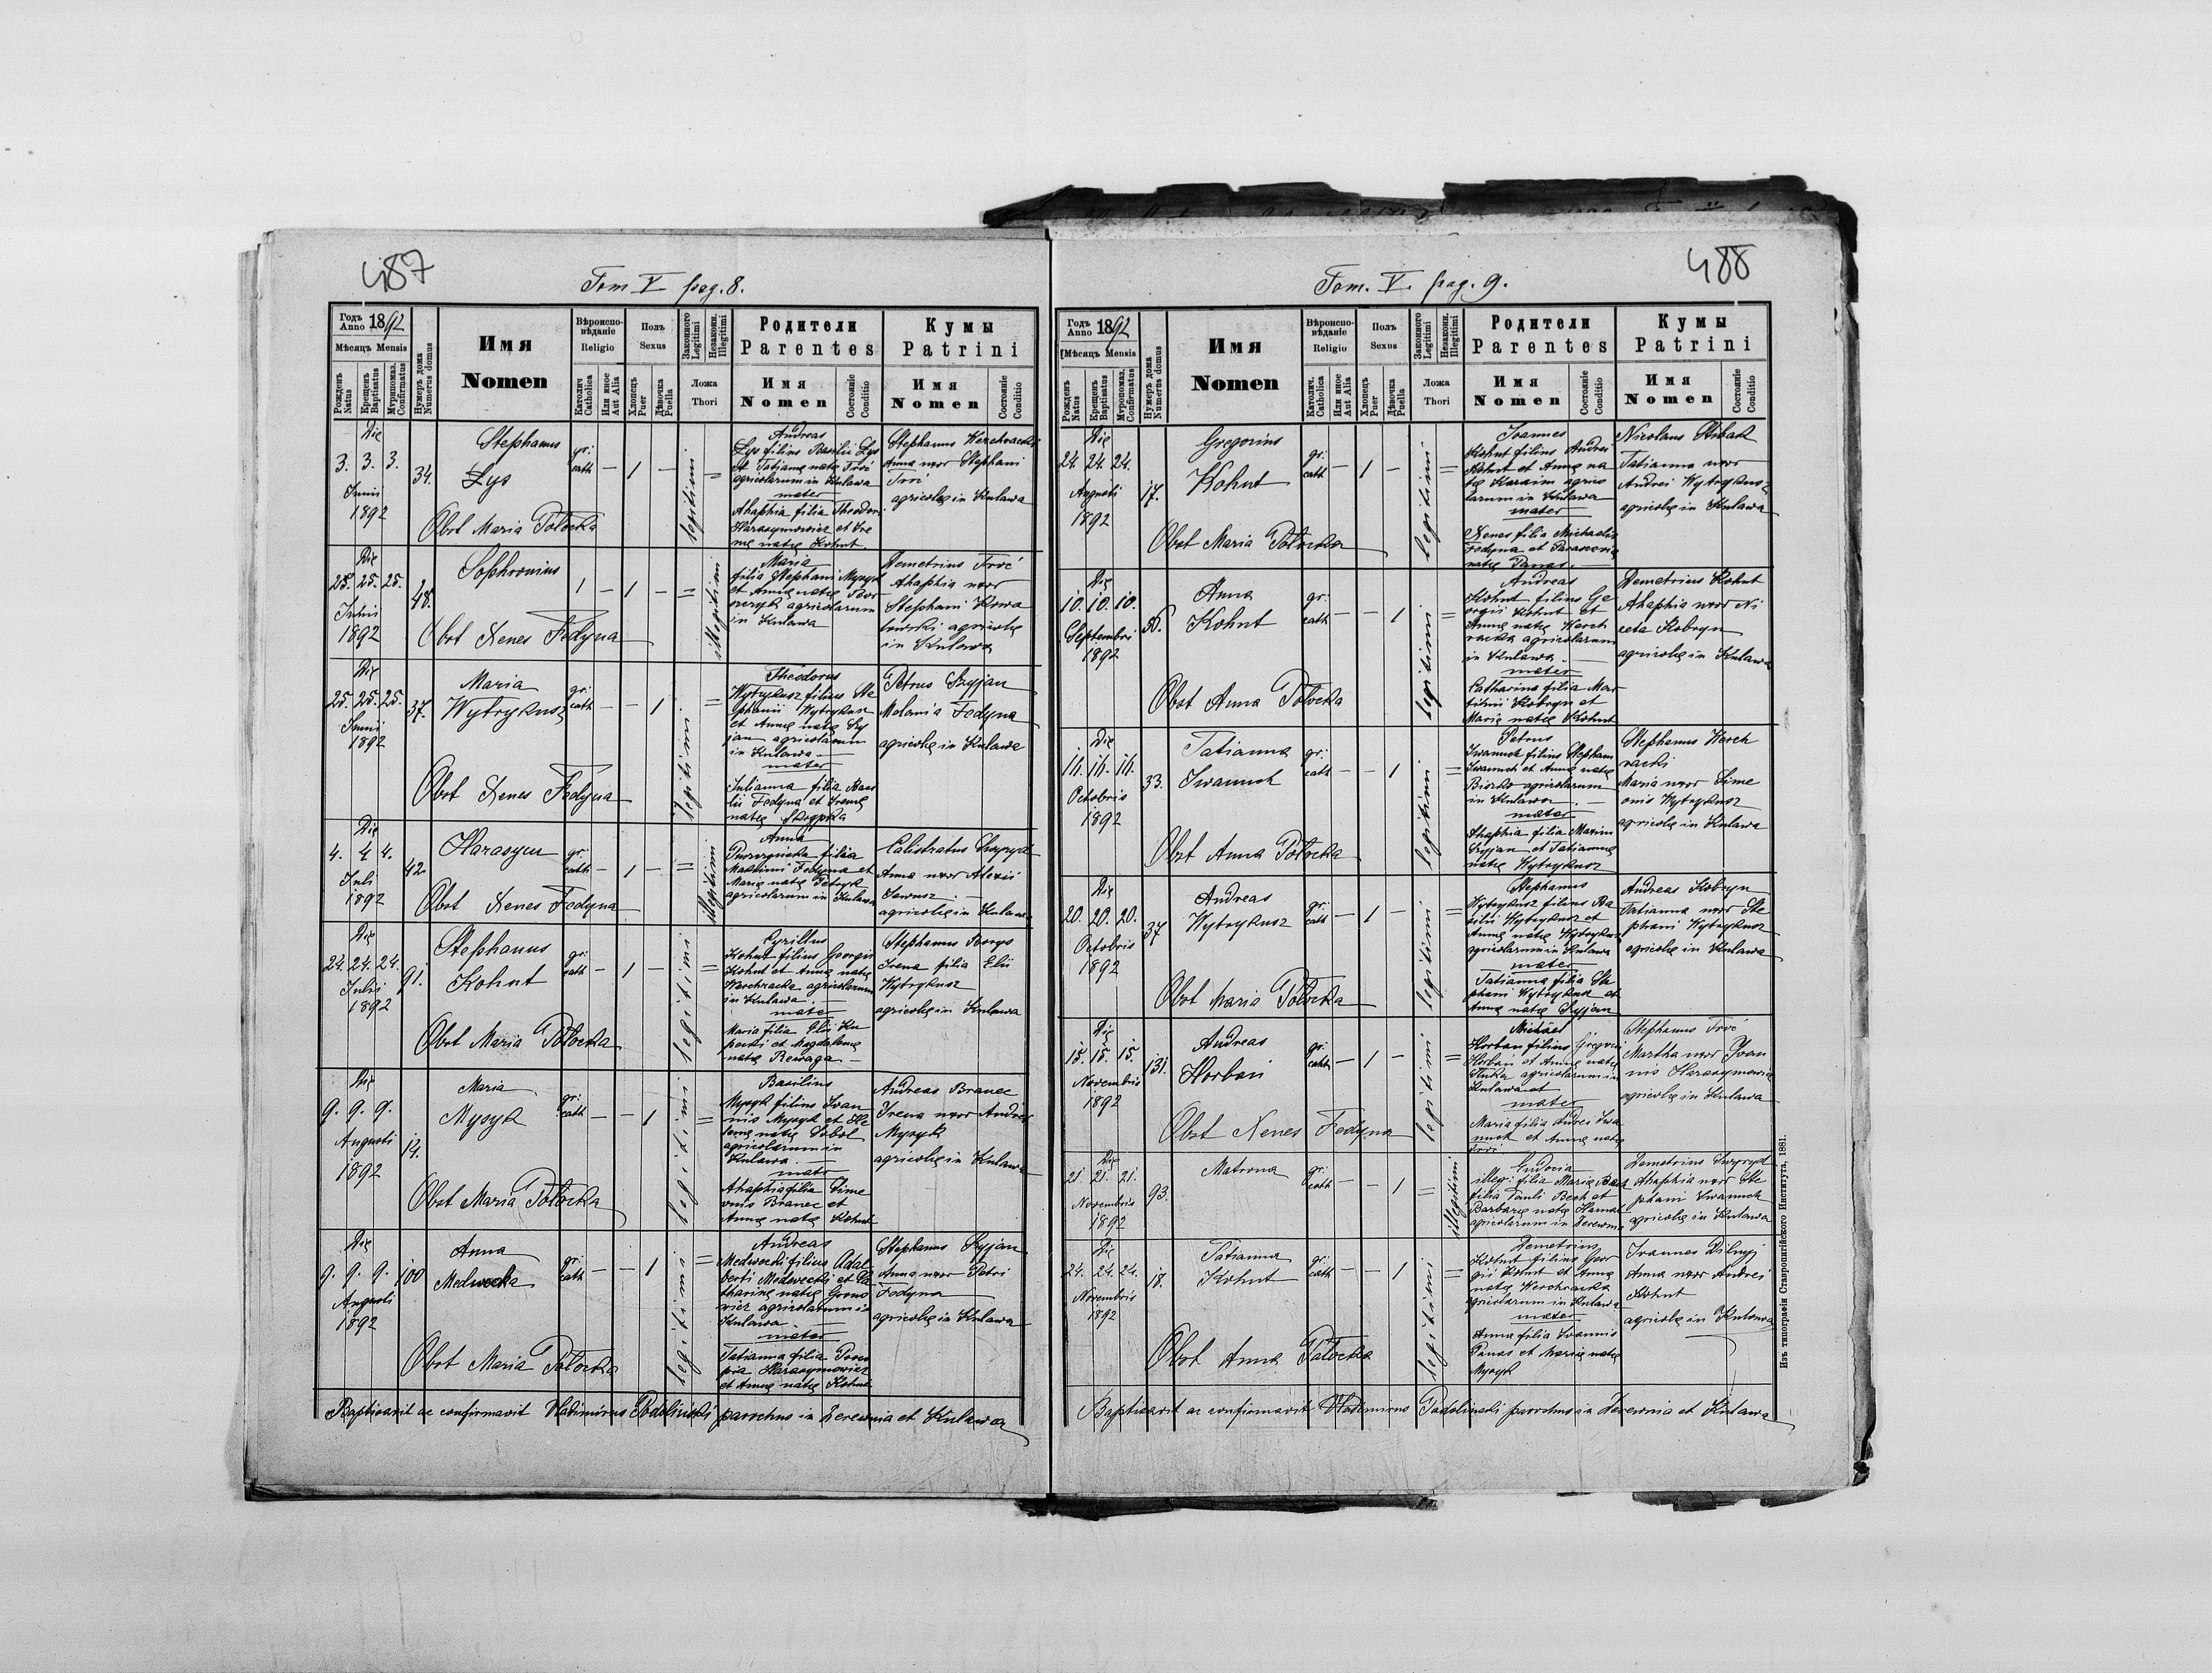 487
Tom V pag. 8.
Годъ Anno 1892
Мѣсяцъ Mensis
Рожденъ Natus
Крещенъ Baptisatus
Муропомаз. Confirmatus
Нумеръ дома Numerus domus
Имя
Nomen
Вѣроиспо-
вѣданіе
Religio
Католич Catholica
Или иное Aut Alia
Полъ
Sexus
Хлопецъ Puer
Дѣвочка Puella
Законного Legitimi
Незаконн. Illegitimi
Ложа
Thori
Родители
Parentes
Имя
Nomen
Состояніе Conditio
Кумы
Patrini
Имя
Nomen
Состояніе Conditio
Die
3. 3. 3.
Junii
1892
34.
Stephanus
Lys
Obst Maria Potocka
gr:
cath
— 1 —
legitimi
Andreas
Lys filius Basilii Lys
et Tatianę natę Troć
agricolarum in Kulawa
mater
Ahaphia filia Theodori
Harasymowicz et Ire
nę natę Kohut
Stephanus Kerchracki
Anna uxor Stephani
Troć
agricolę in Kulawa
Die
25. 25. 25.
Junii
1892
48.
Sophronius
Obst Xenes Fedyna
1 — 1 —
illegitimi
Maria
filia Stephani Mysyk
et Annę natę
agricolarum
in Kulawa
Demetrius Troć
Ahaphia uxor
Stephani Kowa
lewski agricolę
in Kulawa
Die
25. 25. 25.
Junii
1892
37.
Maria
Wytrykusz
Obst Xenes Fedyna
gr:
cath
— — 1
legitimi
Theodorus
Wytrykusz filius Ste
phanii Wytrykusz
et Annę natę Szy
jan agricolarum
in Kulawa
mater
Julianna filia Basi
lii Fedyna et Irenę
natę Skrypka
Petrus Szyjan
Melania Fedyna
agricolę in Kulawa
Die
4. 4 4.
Juli
1892
42.
Harasym
Obst Xenes Fedyna
gr:
cath
— 1 —
illegitimi
Anna
filia
Maximi Fedyna et
Marię natę Petryk
agricolarum in Kulawa
Calistratus
Anna uxor Alexii
Janusz
agricolę in Kulawa
Die
24. 24. 24.
Julii
1892
91.
Stephanus
Kohut
Obst Maria Potocka
gr:
cath
— 1 —
legitimi
Cyrillus
Kohut filius Georgii
Kohut et Annę natę
Kerchracka agricolarum
in Kulawa
mater
Maria filia Elii Ku
pecki et Magdalenę
natę Rewaga
Stephanus Borys
Irena filia Elii
Wytrykusz
agricolę in Kulawa
Die
9. 9. 9.
Augusti
1892
14.
Maria
Mysyk
Obst Maria Potocka
gr:
cath
— — 1
legitimi
Basilius
Mysyk filius Ivan
nis Mysyk et He
lenę natę Sobol
agricolarum in
Kulawa
mater
Ahaphia filia Sime
onis Branec et
Annę natę Kohut
Andreas Branec
Irena uxor Andrei
Mysyk
agricolę in Kulawa
Die
9. 9. 9.
Augusti
1892
100
Anna
Medwecka
Obst Maria Potocka
gr:
cath
— — 1
legitimi
Andreas
Medwecki filius Adal
berti Medwecki et Ca
tharinę natę Grono
wicz agricolarum in
Kulawa
mater
Tatianna filia Proco
pia Harasymowicz
et Annę natę Kohut
Stephanus Szyjan
Anna uxor Petri
Fedyna
agricolę in Kulawa
Baptisavit ac confirmavit Vladimirus Podoliński parochus in Derewnia et Kulawa
488
Tom. V. pag. 9.
Годъ Anno 1892
Мѣсяцъ Mensis
Рожденъ Natus
Крещенъ Baptisatus
Муропомаз. Confirmatus
Нумеръ дома Numerus domus
Имя
Nomen
Вѣроиспо-
вѣданіе
Religio
Католич. Catholica
Или иное Aut Alia
Полъ
Sexus
Хлопецъ Puer
Дѣвочка Puella
Законного Legitimi
Незаконн. Illegitimi
Ложа
Thori
Родители
Parentes
Имя
Nomen
Состояніе Conditio
Кумы
Patrini
Имя
Nomen
Состояніе Conditio
Die
24. 24. 24.
Augusti
1892
17.
Gregorius
Kohut
Obst Maria Potocka
gr:
cath
— 1 —
legitimi
Joannes
Kohut filius Andrei
Kohut et Annę na
tę Karaim agrico
larum in Kulawa
mater
Xenes filia Michaelis
Fedyna et Parascevię
natę Panas
Nicolaus Hrbak
Tatianna uxor
Andrei Wytrykusz
agricolę in Kulawa
Die
10. 10. 10.
Septembri
1892
56.
Anna
Kohut
Obst Anna Potocka
gr:
cath
— — 1
legitimi
Andreas
Kohut filius Ge
orgii Kohut et
Annę natę Kerch
racka agricolarum
in Kulawa
mater
Catharina filia Mar
Kobryn et
Marię natę Kohut
Demetrius Kohut
Ahaphia uxor Ni
ceta Kobryn
agricolę in Kulawa
Die
16. 16. 16.
Octobris
1892
33.
Tatianna
Iwanuch
Obst Anna Potocka
gr:
cath
— — 1
legitimi
Petrus
Iwanuch filius Stephani
Iwanuch et Annę natę
agricolarum
in Kulawa
mater
Ahaphia filia Maxim
Szyjan et Tatiannę
natę Wytrykusz
Stephanus Kerch
racki
Maria uxor Sime
onis Wytrykusz
agricolę in Kulawa
Die
20. 20. 20.
Octobris
1892
37
Andreas
Wytrykusz
Obst Maria Potocka
gr:
cath
— 1 —
legitimi
Stephanus
Wytrykusz filius Ba
silii Wytrykusz et
Annę natę Wytrykusz
agricolarum in Kulawa
mater
Tatianna filia Ste
phani Wytrykusz et
Annę natę Szyjan
Andreas Kobryn
Tatianna uxor Ste
phani Wytrykusz
agricolę in Kulawa
Die
15. 15. 15.
Novembris
1892
131.
Andreas
Horban
Obst Xenes Fedyna
gr:
cath
— 1 —
legitimi
Michael
Horban filius Gregorii
Horban et Annę natę
agricolarum in
Kulawa et
mater
Maria filia Andrei Iwa
nuch et Annę natę
Troć
Stephanus Troć
Martha uxor Ivan
nis Harasymowicz
agricolę in Kulawa
Die
21. 21. 21.
Novembris
1892
93.
Matrona
gr:
cath
— — 1
illegitimi
Eudocia
illegi: filia Marię Bech
filia Pauli Bech et
Barbarę natę
agricolarum in Derewnia
Demetrius
Ahaphia uxor Ste
phani Iwanuch
agricolę in Kulawa
Die
24. 24. 24.
Novembris
1892
18.
Tatianna
Kohut
Obst Anna Potocka
gr:
cath
— — 1
legitimi
Demetrius
Kohut filius Geor
gii Kohut et Annę
natę Kerchracka
agricolarum in Kulawa
mater
Anna filia Ivannis
Panas et Marię natę
Mysyk
Ivannes Dilnyj
Anna uxor Andrei
Kohut
agricolę in Kulawa
Baptisavit ac confirmavit Vladimirus Podoliński parochus in Derewnia et Kulawa
Изъ типографіи Ставропигійского Института, 1881.